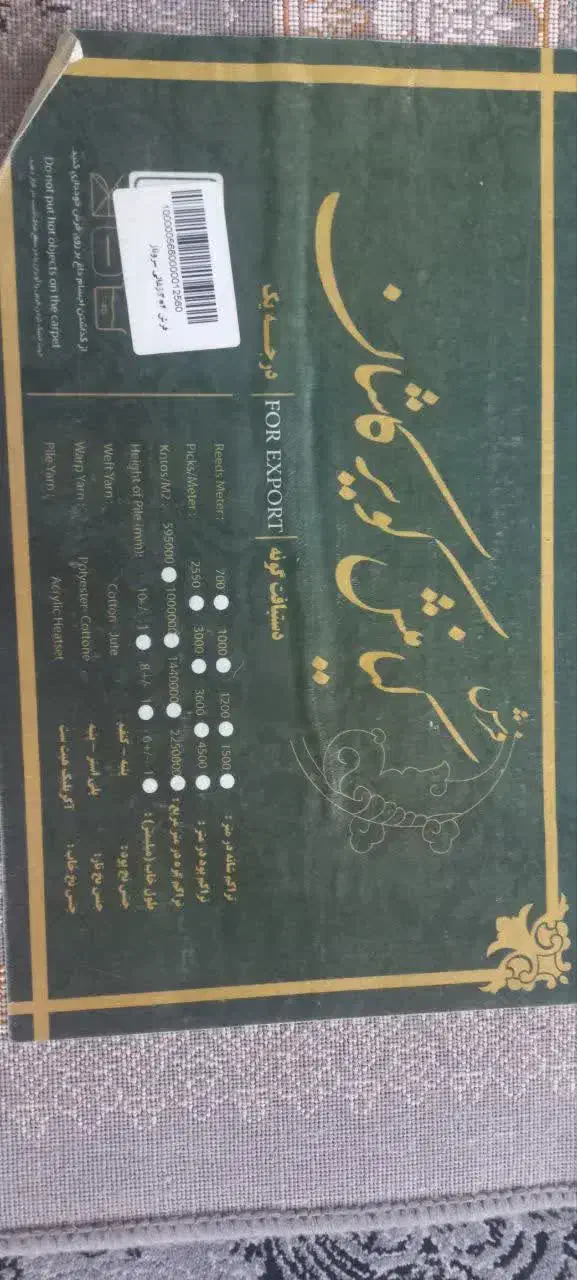 فرش
کیانفش کویر کاشان
درجه یک | FOR EXPORT | دستبافت گونه
10000005680000012560
Reeds Meter : 700 1000 1200 1500 تراکم شانه در متر :
Picks/Meter : 2550 3000 3600 4500 تراکم پود در متر :
Knros/M2 : 595000 1000000 1440000 2250000 تراکم گره در متر مربع :
Height of Pile (mm): 10+/-1 8+/-1 6+/-1 طول خاب (میلیمتر) :
Weft Yarn : Cotton - Jute پنبه – کنف جنس نخ پود :
Warp Yarn : Polyester - Cottone پلی استر – پنبه جنس نخ تار :
Pile Yarn : Acrylic Heatset آکریلیک هیت ست جنس نخ خاب :
از گذاشتن اجسام داغ بر روی فرش خودداری کنید
Do not put hot objects on the carpet